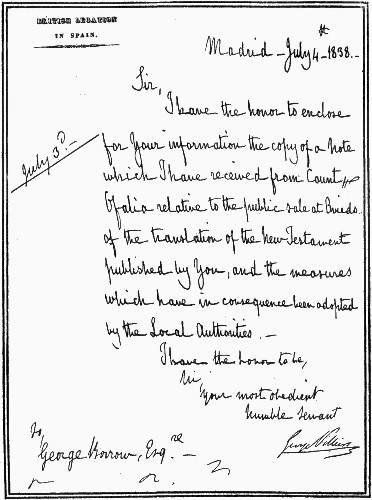 BRITISH LEGATION
IN SPAIN.
Madrid - July 4th - 1838. -
Sir,
I have the honor to enclose
for your information the copy of a Note
July 3d. -
which I have received from Count
Ofalia relative to the public sale at
of the translation of the New Testament
published by You, and the measures
which have in consequence been adopted
by the Local Authorities. -
I have the honor to be,
Sir,
Your most obedient
humble servant
George Villiers
To,
George Borrow, Esqre. -